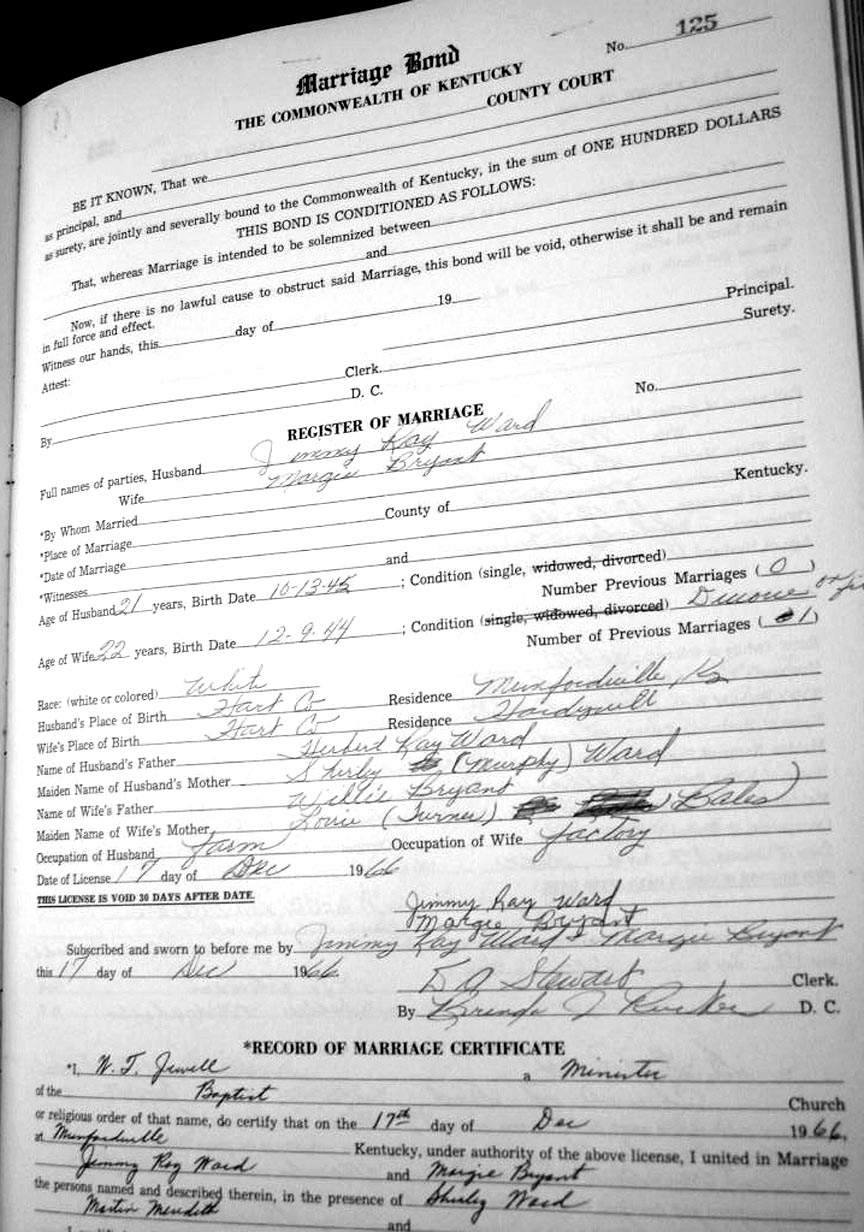 No. 125
Marriage Bond
THE COMMONWEALTH OF KENTUCKY
COUNTY COURT
BE IT KNOWN, That we
as principal, and
as surety, are jointly and severally bound to the Commonwealth of Kentucky, in the sum of ONE HUNDRED DOLLARS
THIS BOND IS CONDITIONED AS FOLLOWS:
That, whereas Marriage is intended to be solemnized between
and
Now, if there is no lawful cause to obstruct said Marriage, this bond will be void, otherwise it shall be and remain
in full force and effect.
Witness our hands, this day of 19
Principal.
Attest: Surety.
Clerk.
By D. C.
No.
REGISTER OF MARRIAGE
Full names of parties, Husband Jimmy Ray Ward
Wife Margie Bryant
*By Whom Married
*Place of Marriage County of Kentucky.
*Date of Marriage
*Witnesses and
Age of Husband 21 years, Birth Date 10-13-45 ; Condition (single, widowed, divorced)
Number Previous Marriages ( 0 )
Age of Wife 22 years, Birth Date 12-9-44 ; Condition (single, widowed, divorced) Divorce
Number of Previous Marriages ( 1 )
Race: (white or colored) White
Husband's Place of Birth Hart Co Residence Munfordville, Ky
Wife's Place of Birth Hart Co Residence Hardyville
Name of Husband's Father Herbert Ray Ward
Maiden Name of Husband's Mother Shirley (Murphy) Ward
Name of Wife's Father Willie Bryant
Maiden Name of Wife's Mother (Turner) Bales
Occupation of Husband farm Occupation of Wife factory
Date of License 17 day of Dec 1966
THIS LICENSE IS VOID 30 DAYS AFTER DATE.
Jimmy Ray Ward
Margie Bryant
Subscribed and sworn to before me by Jimmy Ray Ward & Margie Bryant
this 17 day of Dec 1966.
Stewart Clerk.
By Brenda J Rucker D. C.
*RECORD OF MARRIAGE CERTIFICATE
*I, W. T. Jewell a Minister
of the Baptist Church
or religious order of that name, do certify that on the 17th day of Dec 1966,
at Munfordville Kentucky, under authority of the above license, I united in Marriage
Jimmy Ray Ward and Margie Bryant
the persons named and described therein, in the presence of Shirley Ward
Martin Meredith and